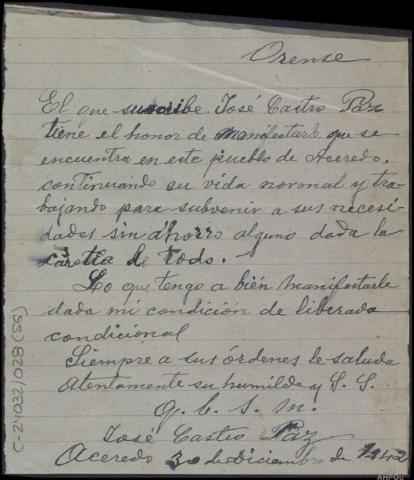 Orense
El que suscribe José Castro Paz
tiene el honor de manifestarle que se
encuentra en este pueblo de Aceredo,
continuando su vida normal y tra-
bajando para subvenir a sus necesi-
dades sin ahorro alguno dada la
carestia de todo. -
Lo que tengo a bién manifestarle
dada mi condición de liberado
condicional
Siempre a sus órdenes le saluda
atentamente su humilde y S. S.
q. b. s. m.
José Castro Paz
Aceredo 30 de Diciembre de 1942
C-24032/028 (SG)
AHPOU